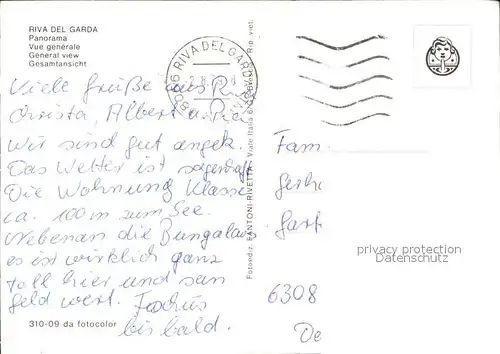 RIVA DEL GARDA
Panorama
Vue générale
General view
Gesamtansicht
38066 RIVA DEL GARDA
Viele Grüße aus
Christa, Albert u.
Wir sind gut angek.
Das Wetter ist sagenhaft
Die Wohnung Klasse
ca. 100 m zum See.
Nebenan die Bungalows
es ist wirklich ganz
toll hier und sein
Geld wert.
bis bald.
310-09 da fotocolor
Fotoediz. FANTONI-RIVETTA - Viale Italia
Rip. viet.
Fam
6308
privacy protection
Datenschutz